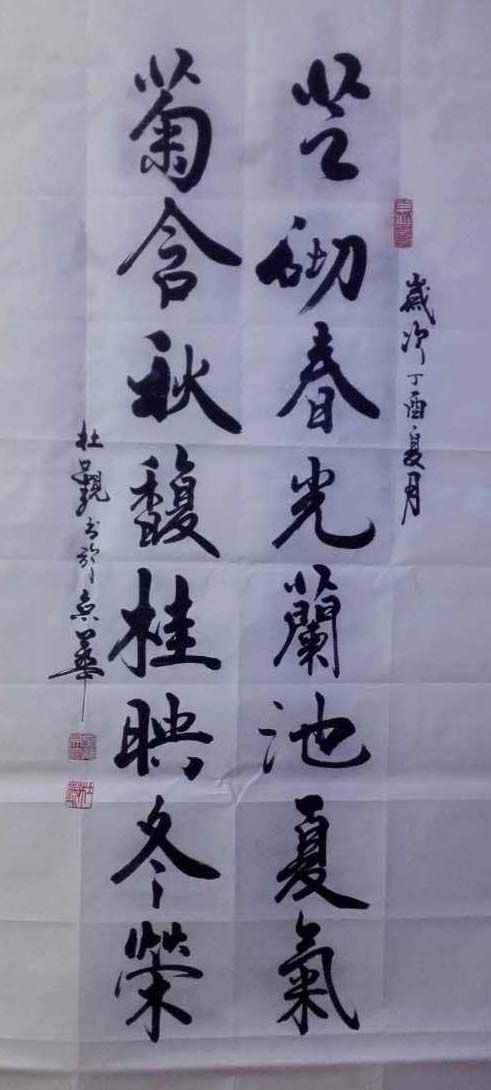 歲次丁酉夏月
芝砌春光蘭池夏氣
菊含秋馥桂映冬榮
杜书於京華